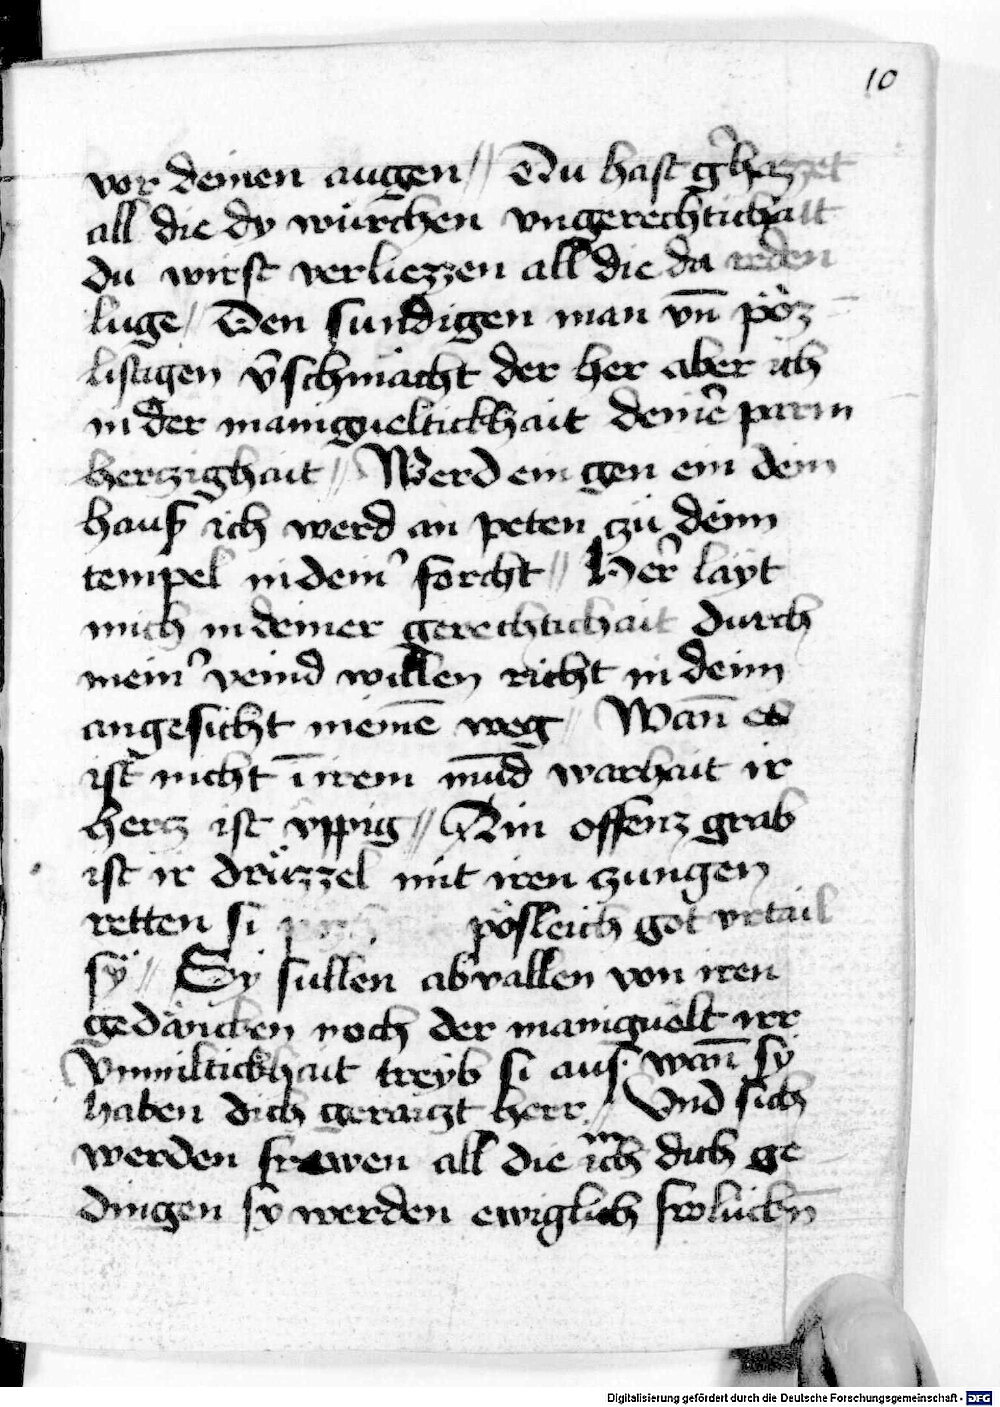 10
vor deinen augen // Du hast gehazzet
all die dy würchen vngerechtichait
du wirst verliezzen all die da reden
luge / Den sundigen man vn̄ pöz
listigen v̄schmächt der her aber ich
in der manigueltickhait deinē parm
hertzighait // Werd ein gen ein dein
haus ich werd an peten czu deinn
tempel in dein͛ forcht // Her͛ layt
mich in deiner gerechtichait durch
mein͛ veind willen richt in deinn
angesicht meinē weg // Wan̄ es
ist nicht ī irem mūd warhait ir
hertz ist vppig // Ain offenz grab
ist ir drüzzel mit iren czungen
retten si pösleich got vrtail
sÿ // Sÿ sullen abvallen von iren
gedäncken noch der maniguëlt irr
Vnmiltickhait treyb si aus wan̄ sÿ
haben dich geraiczt herr // Vnd sich
werden frawen all die in dich ge
dingen sy werden ewiglich frolückn̄
Digitalisierung gefördert durch die Deutsche Forschungsgemeinschaft - DFG